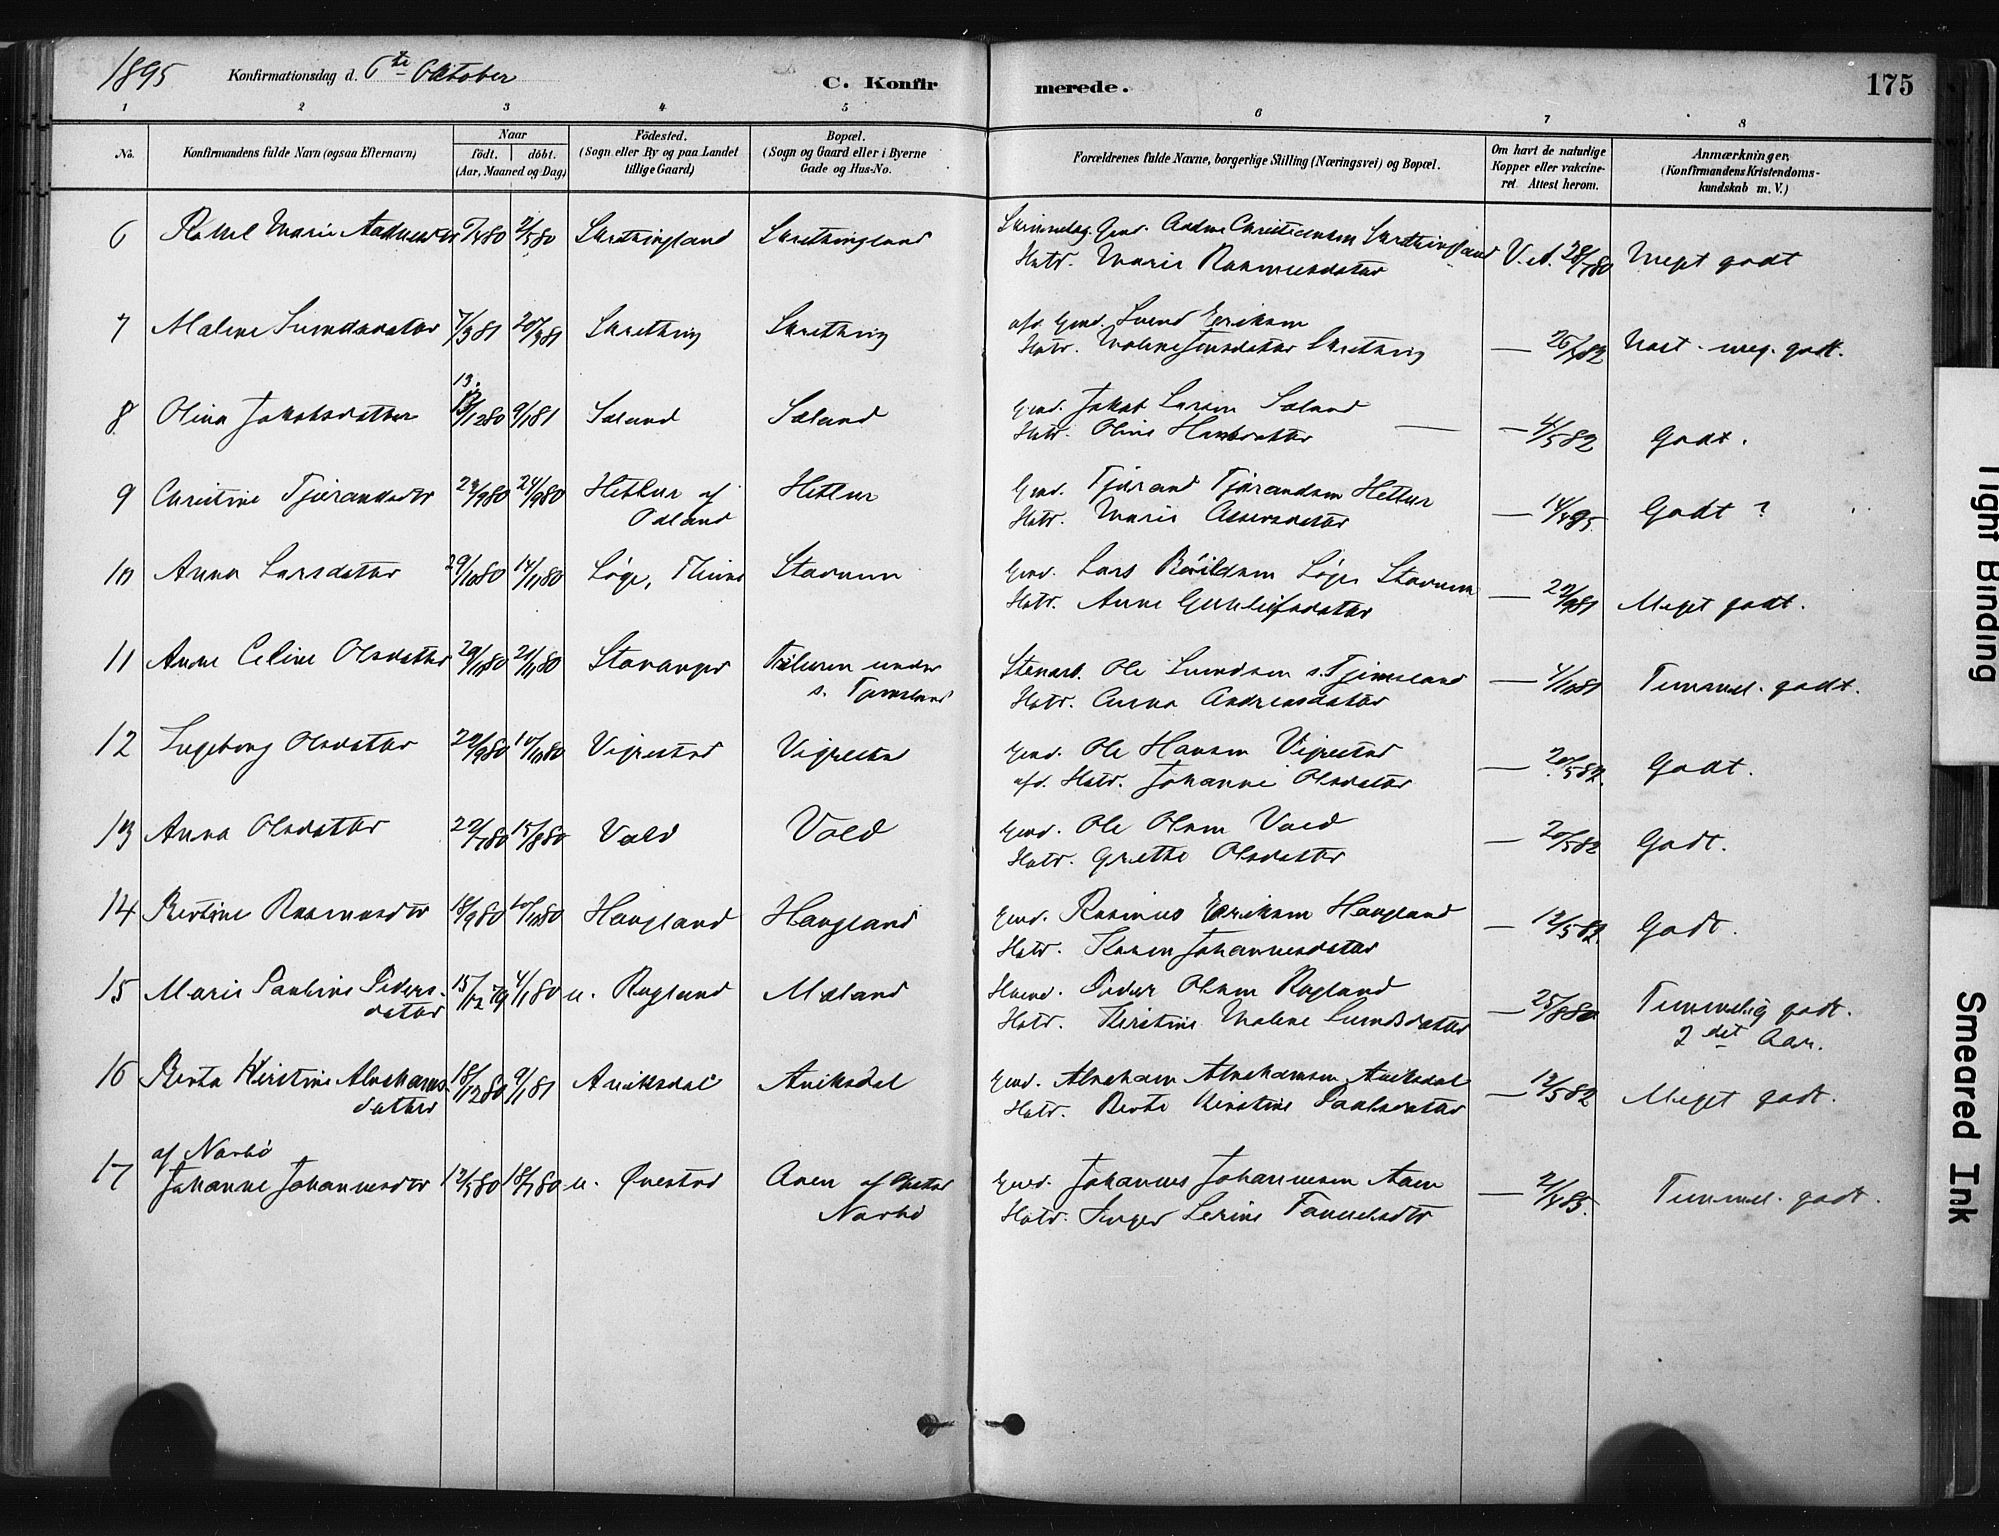 1895 Konfirmationsdag d. 6te Oktober
C. Konfirmerede.
175
1 2 3 4 5 6 7 8
No.
Konfirmandens fulde Navn (ogsaa Efternavn)
Naar
födt. döbt.
(Aar, Maaned og Dag)
Födested.
(Sogn eller By og paa Landet
tillige Gaard)
Bopæl.
(Sogn og Gaard eller i Byerne
Gade og Hus-No.
Forældrenes fulde Navne, borgerlige Stilling (Næringsvei) og Bopæl.
Om havt de naturlige
Kopper eller vakcine-
ret. Attest herom.
Anmærkninger,
(Konfirmandens Kristendoms-
kundskab m. V.)
6 Marie 2/5 80 Skrethingland Skrethingland Christiansen Skrethingland V.A. 28/7 80 Meget godt
Hstr. Marie Rasmusdatter
7 Malene Svendsdatter 7/3 81 20/3 81 Skrething Skrething afd. Gmd. Svend Eriksen
Hstr. Malene Skrething — Næst. meg. godt.
13.
8 Olina Jakobsdatter 13/12 80 9/1 81 Sæland Sæland Gmd. Jakob Larsen Sæland
Hstr. Oline Hansdatter — — 4/5 82 Godt.
9 Christine Tjørandsdtr 24/9 80 Hetlur af Hetlur Gmd. Tjørand Tjørandsen Hetlur
Odland Hstr. Marie Assersdatter — 14/4 95 Godt ?
10 Anna Larsdatter 29/10 80 14/11 80 Løge, Thime Stavnem Gmd. Lars Bårdsen Løge Stavnem
Hstr. Anne Gunleifsdatter — 20/9 81 Meget godt.
11 Anne Celine Olsdatter 21/11 80 Stavanger under Stenarb. Ole Svendsen s. Tjemsland
s. Tjemsland Hstr. Anna Andreasdatter — 4/10 81 Temmel. godt.
12 Ingeborg Olsdatter 22/9 80 10/10 80 Vigrestad Vigrestad Gmd. Ole Hansen Vigrestad
afd. Hstr. Johanne Olsdatter — 20/5 82. Godt.
13 Anna Olsdatter 22/7 80 15/8 80 Vold Vold Gmd. Ole Olsen Vold
Hstr. Grethe Olsdatter — 20/5 82 Godt.
14 Bertine Rasmusdtr 18/9 80 10/10 80 Haugland Haugland Gmd. Rasmus Eriksen Haugland
Hstr. Karen Johannesdatter — 12/5 82. Godt.
15 Marie Pauline Peders- 15/12 79 4/1 80 u. Rugland Mæland Husmd. Peder Olsen Rugland
datter Hstr. Kirstine Malene Svendsdatter — 25/8 80 Temmelig godt.
2det Aar.
16 Berta Kirstine Abrahams- 18/12 80 9/1 81 Aniksdal Aniksdal Gmd. Abraham Abrahamsen Aniksdal
datter Hstr. Berte Kirstine Paulsdatter — 12/5 82 Meget godt.
af Narbø
17 Johanne Johannesdtr 18/7 80 u. Ørestad Aaen af Narbø Gmd. Johannes Johannesen Aaen
Hstr. Inger Serine — 2/4 85. Temmel. godt.
Tight Binding
Smeared Ink